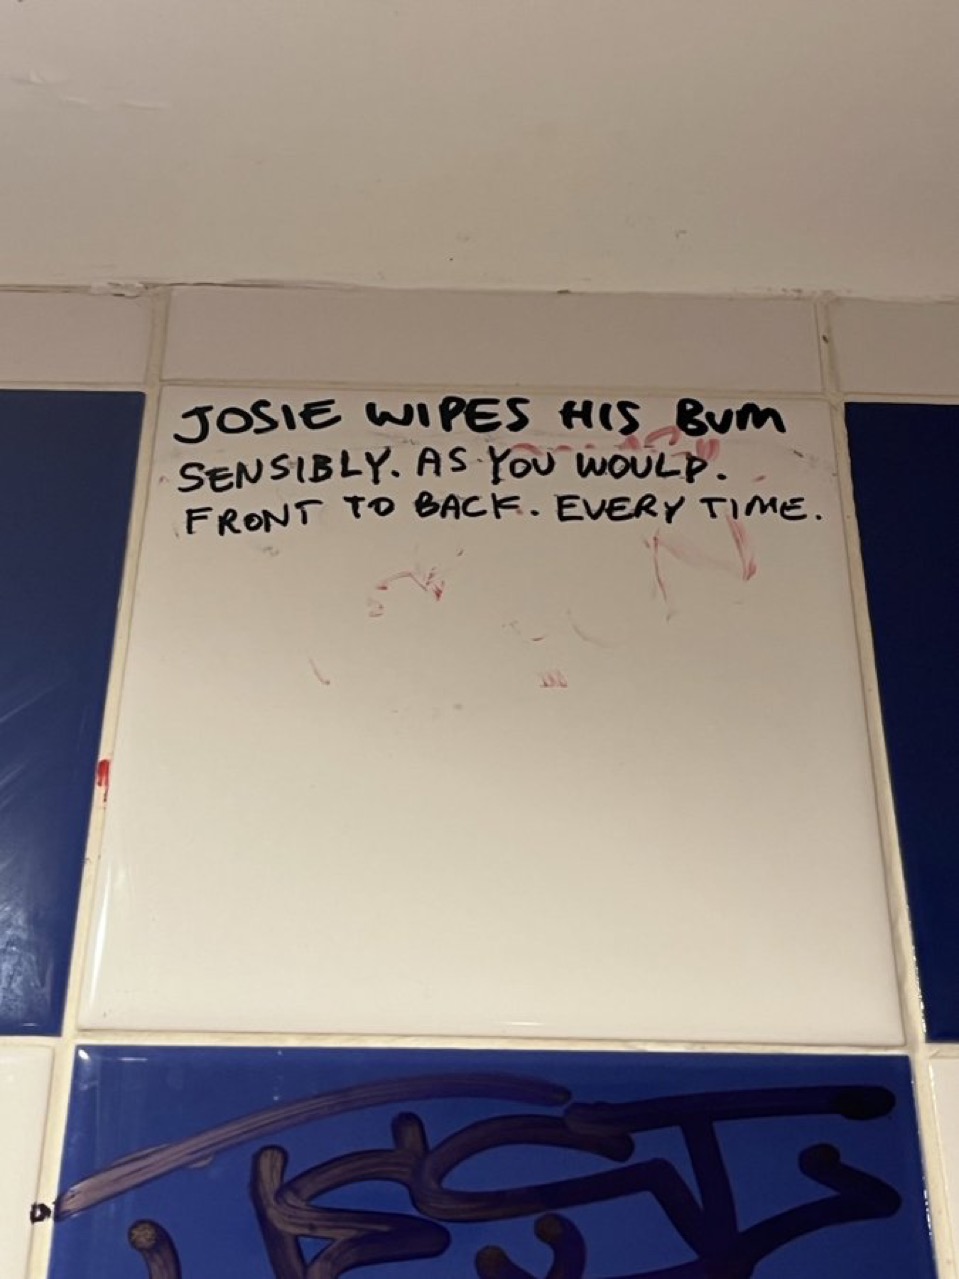 JOSIE WIPES HIS BUM
SENSIBLY. AS YOU WOULD.
FRONT TO BACK. EVERY TIME.